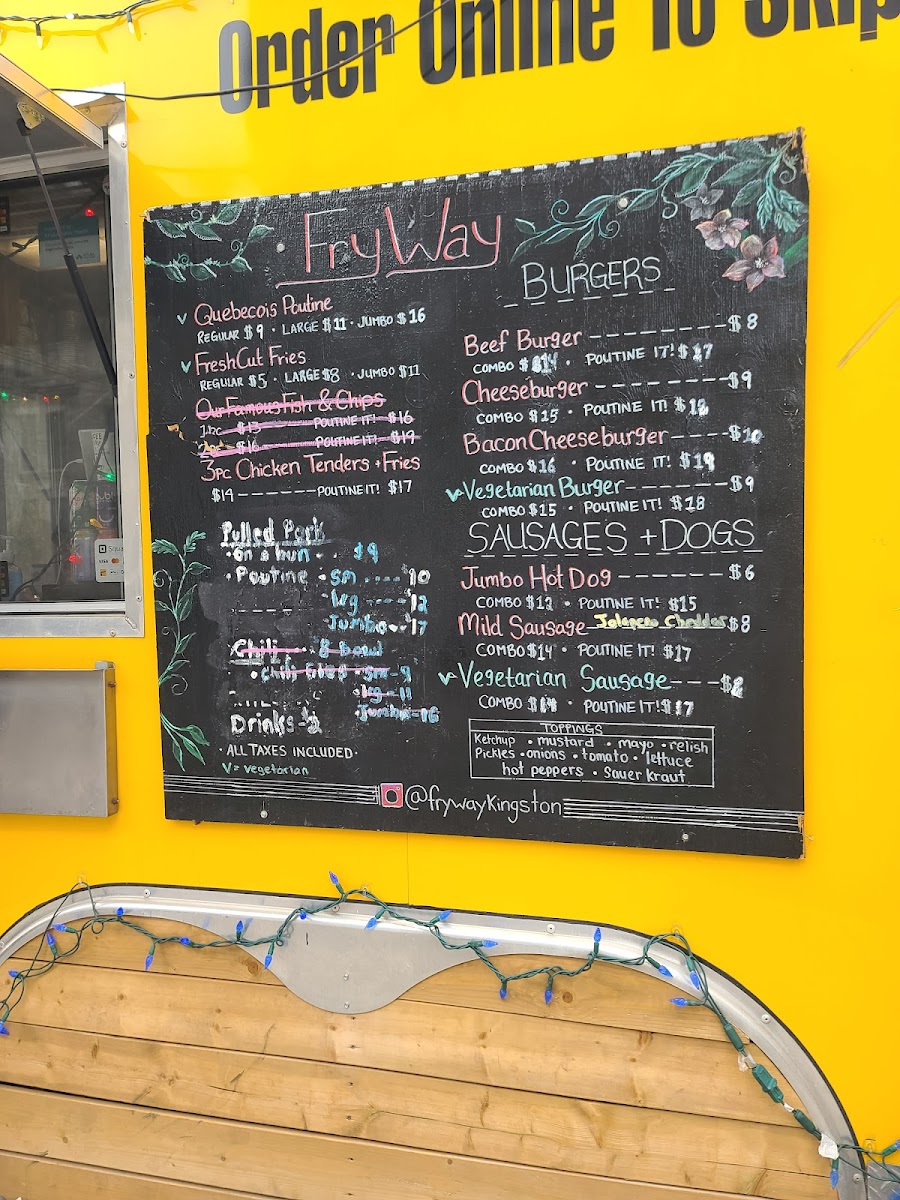 Order Online To Skip
FryWay
V Quebecois Poutine
REGULAR $9 · LARGE $11 · JUMBO $16
V FreshCut Fries
REGULAR $5 · LARGE $8 · JUMBO $11
Our Famous Fish & Chips
1pc - $13 POUTINE IT! $16
2pc - $16 POUTINE IT! $19
3pc Chicken Tenders + Fries
$14 ------- POUTINE IT! $17
Pulled Pork
· on a bun - - $9
· Poutine · sm ---- $10
· lrg ---- $12
Jumbo -- $17
Chili - 8 bowl
· Chili Fries · sm - 9
· lrg - 11
· Jumbo - 16
Drinks - 2
· ALL TAXES INCLUDED ·
V = vegetarian
BURGERS
Beef Burger --------- $8
COMBO $14 · POUTINE IT! $17
Cheeseburger -------- $9
COMBO $15 · POUTINE IT! $18
Bacon Cheeseburger ---- $10
COMBO $16 · POUTINE IT! $19
V Vegetarian Burger ------- $9
COMBO $15 · POUTINE IT! $18
SAUSAGES + DOGS
Jumbo Hot Dog ------ $6
COMBO $12 · POUTINE IT! $15
Mild Sausage Jalapeno Cheddar $8
COMBO $14 · POUTINE IT! $17
V Vegetarian Sausage --- $8
COMBO $14 · POUTINE IT! $17
TOPPINGS
Ketchup · mustard · mayo · relish
Pickles · onions · tomato · lettuce
hot peppers · Sauer kraut
@frywayKingston